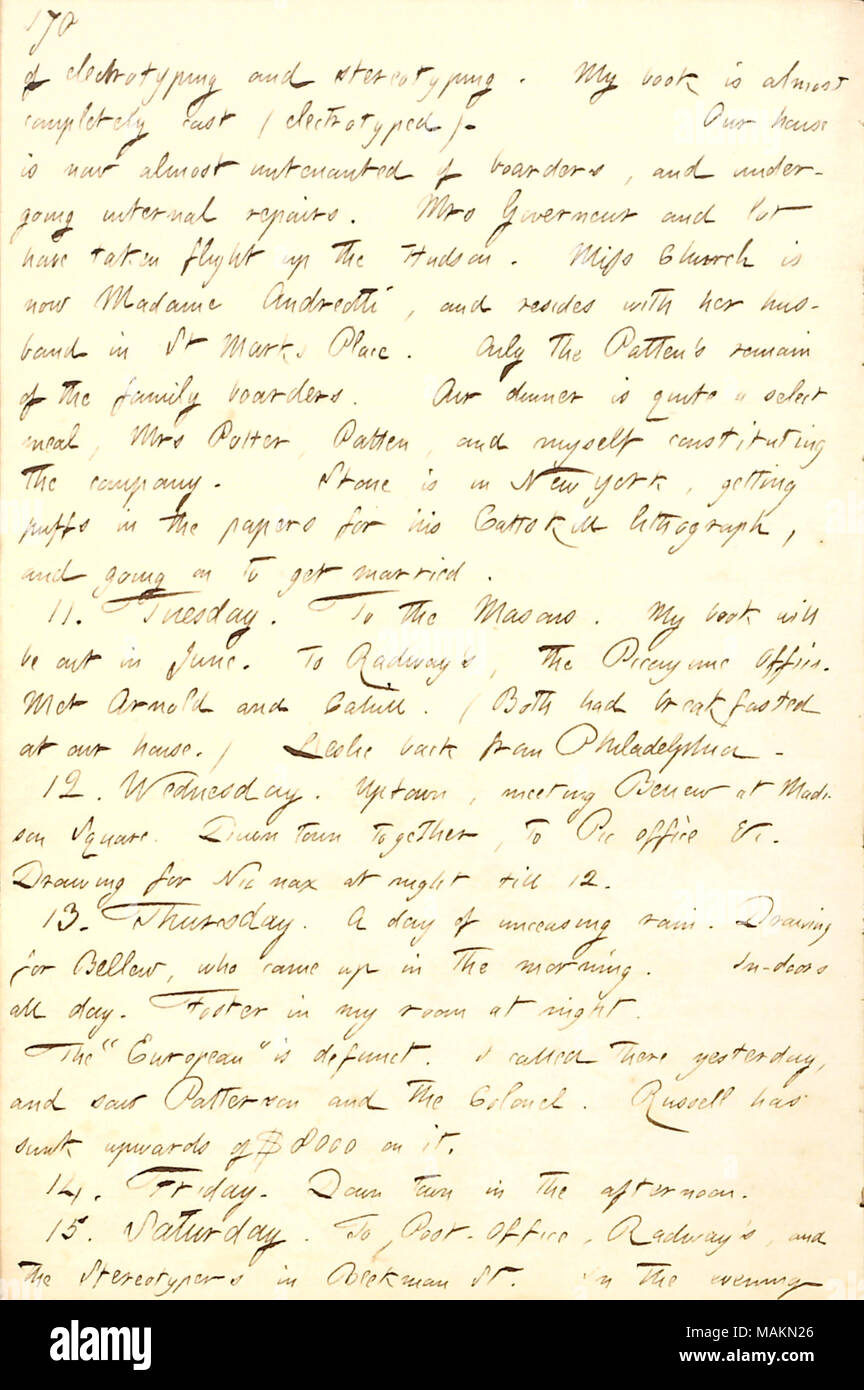 178
of electrotyping and stereotyping. My book is almost
completely cast (electrotyped). Our house
is now almost untenanted of boarders, and under-
going internal repairs. Mrs Governeur and lot
have taken flight up the Hudson. Miss Church is
now Madame Andreotti, and resides with her hus-
band in St Marks Place. Only the Patten's remain
of the family boarders. Our dinner is quite a select
meal, Mrs Potter, Patten, and myself constituting
the company. Stone is in New York, getting
puffs in the papers for his Cattskill lithograph,
and going on to get married.
11. Tuesday. To the Masons. My book will
be out in June. To Radway's, the Picayune Office.
Met Arnold and Cahill. (Both had breakfasted
at our house.) Leslie back from Philadelphia.
12. Wednesday. Uptown, meeting Bellew at Madi-
son Square. Down town together, to Pic office &c.
Drawing for Nic nax at night till 12.
13. Thursday. A day of unceasing rain. Drawing
for Bellew, who came up in the morning. In-doors
all day. Foster in my room at night.
The "European" is defunct. I called there yesterday,
and saw Patterson and the Colonel. Russell has
sunk upwards of $8000 on it.
14. Friday. Down town in the afternoon.
15. Saturday. To Post-Office, Radway's, and
the Stereotypers in Beekman St. In the evening
alamy
Image ID: MAKN26
www.alamy.com